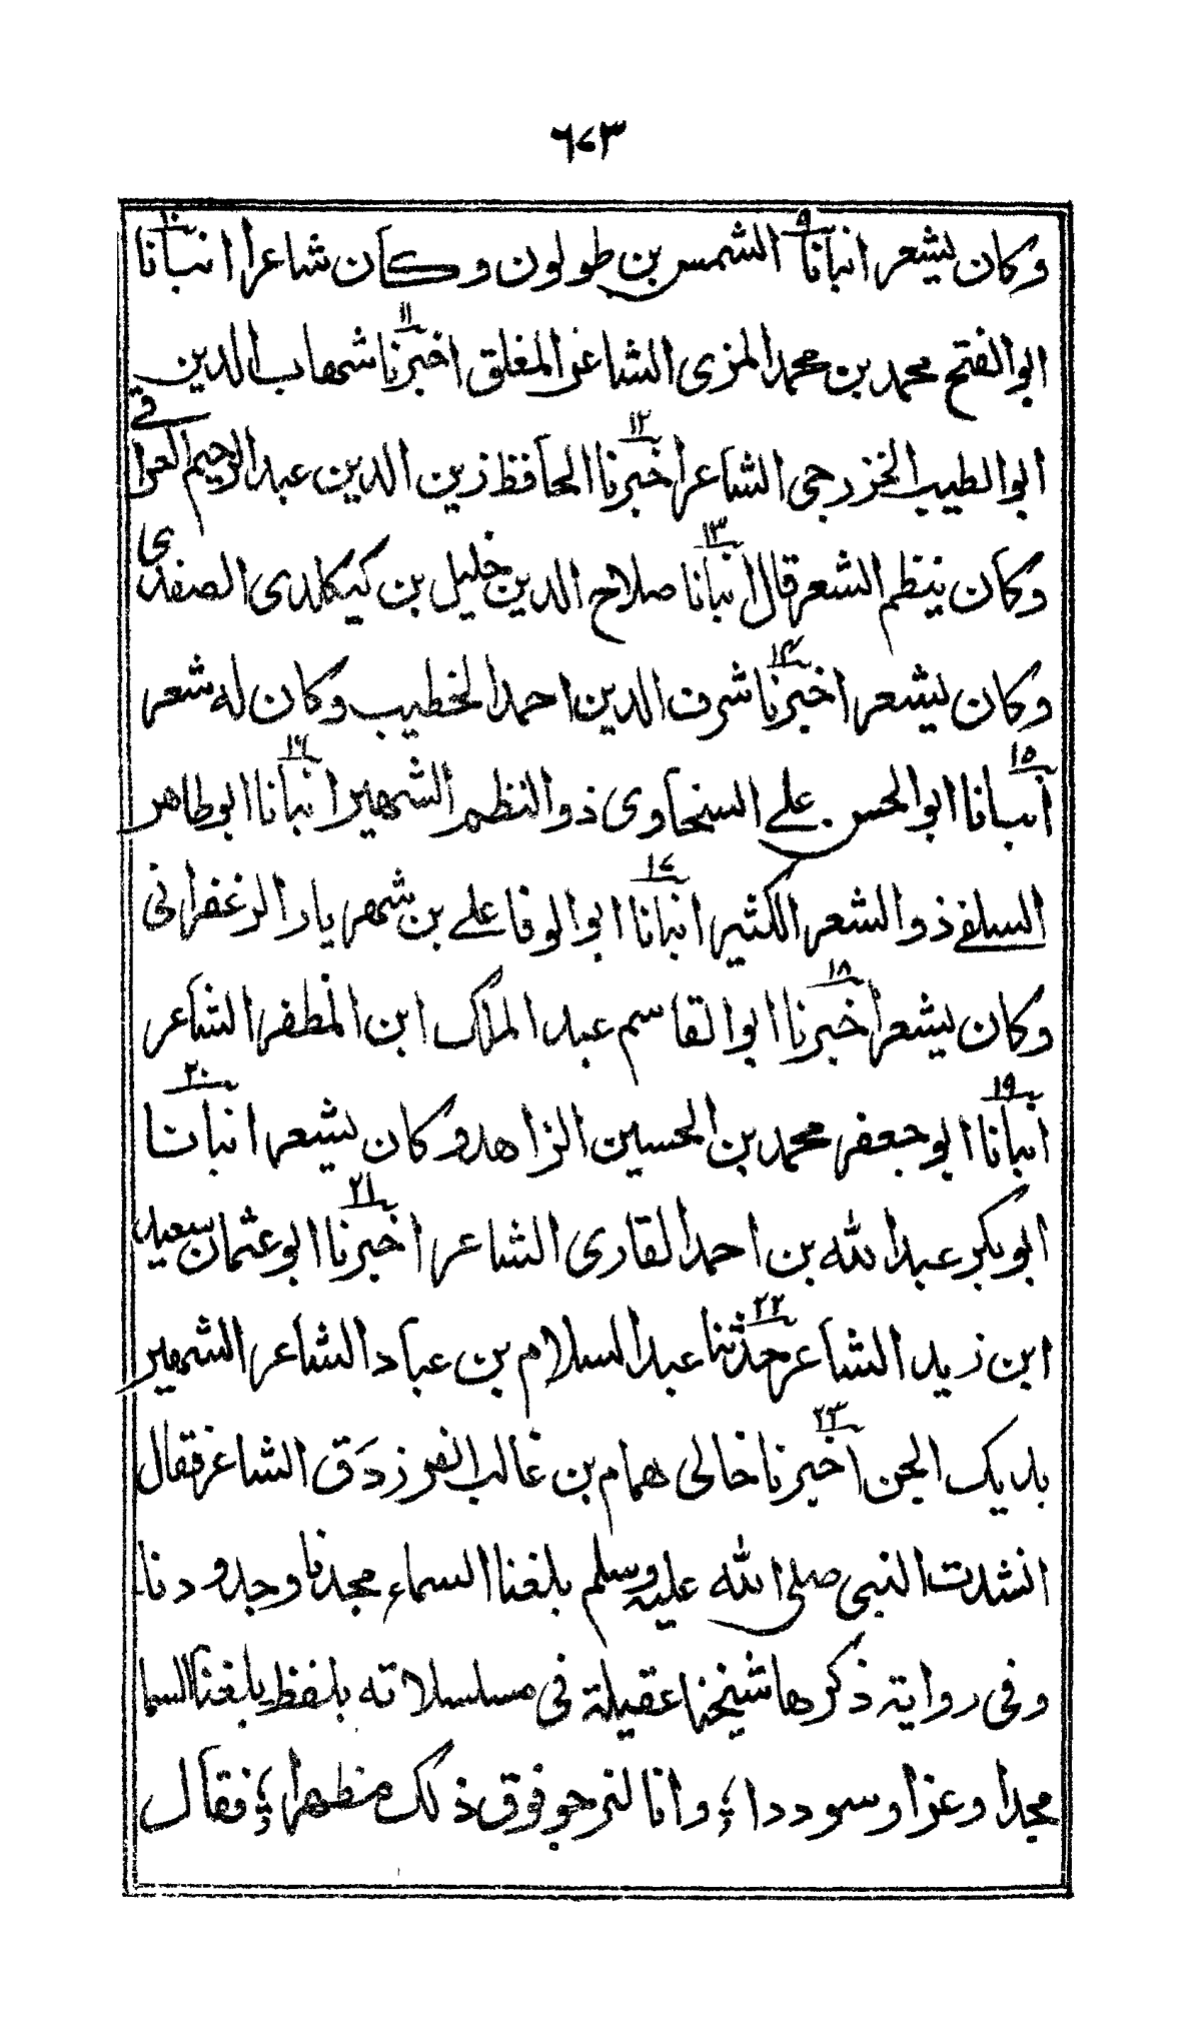 ٦٧٣
وكان يشعر انبأنا ٩ الشمس بن طولون وكان شاعرا انبأنا ١٠
ابوالفتح محمد بن محمد المزى الشاعر المغلق اخبرنا ١١ شهاب الدين
ابوالطيب الخزرجى الشاعر اخبرنا ١٢ الحافظ زين الدين عبد الرحيم العراقى
وكان ينظم الشعر قال انبأنا ١٣ صلاح الدين خليل بن كيكلدى الصفدى
وكان يشعر اخبرنا ١٤ شرف الدين احمد الخطيب وكان له شعر
انبأنا ١٥ ابوالحسن على السنحاوى ذو النظم الشهير انبأنا ١٦ ابوطاهر
السلفى ذو الشعر الكثير انبأنا ١٧ ابوالوفا على بن شهر يار الزعفرانى
وكان يشعر اخبرنا ١٨ ابوالقاسم عبد الملك ابن المظفر الشاعر
انبأنا ١٩ ابوجعفر محمد بن الحسين الزاهد وكان يشعر انبأنا ٢٠
ابوبكر عبد الله بن احمد القارى الشاعر اخبرنا ٢١ ابوعثمان سعيد
ابن زيد الشاعر حدثنا ٢٢ عبد السلام بن عباد الشاعر الشهير
بديك الجن اخبرنا ٢٣ خالى همام بن غالب الفرزدق الشاعر فقال
انشدت النبى صلى الله عليه وسلم بلغنا السماء مجدنا وجدودنا
وفى رواية ذكرها شيخنا عقيلة فى مسلسلاته بلفظ بلغنا السما
مجدا وعزا وسوددا ؛ وانا لنرجو فوق ذلك منظهرا ؛ فقال